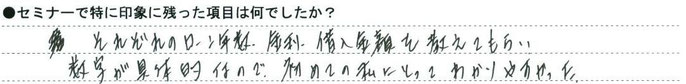 ●セミナーで特に印象に残った項目は何でしたか？
それぞれのローン年数、金利、借入金額を教えてもらい
数字が具体的なので、初めての私にとってわかりやすかった。